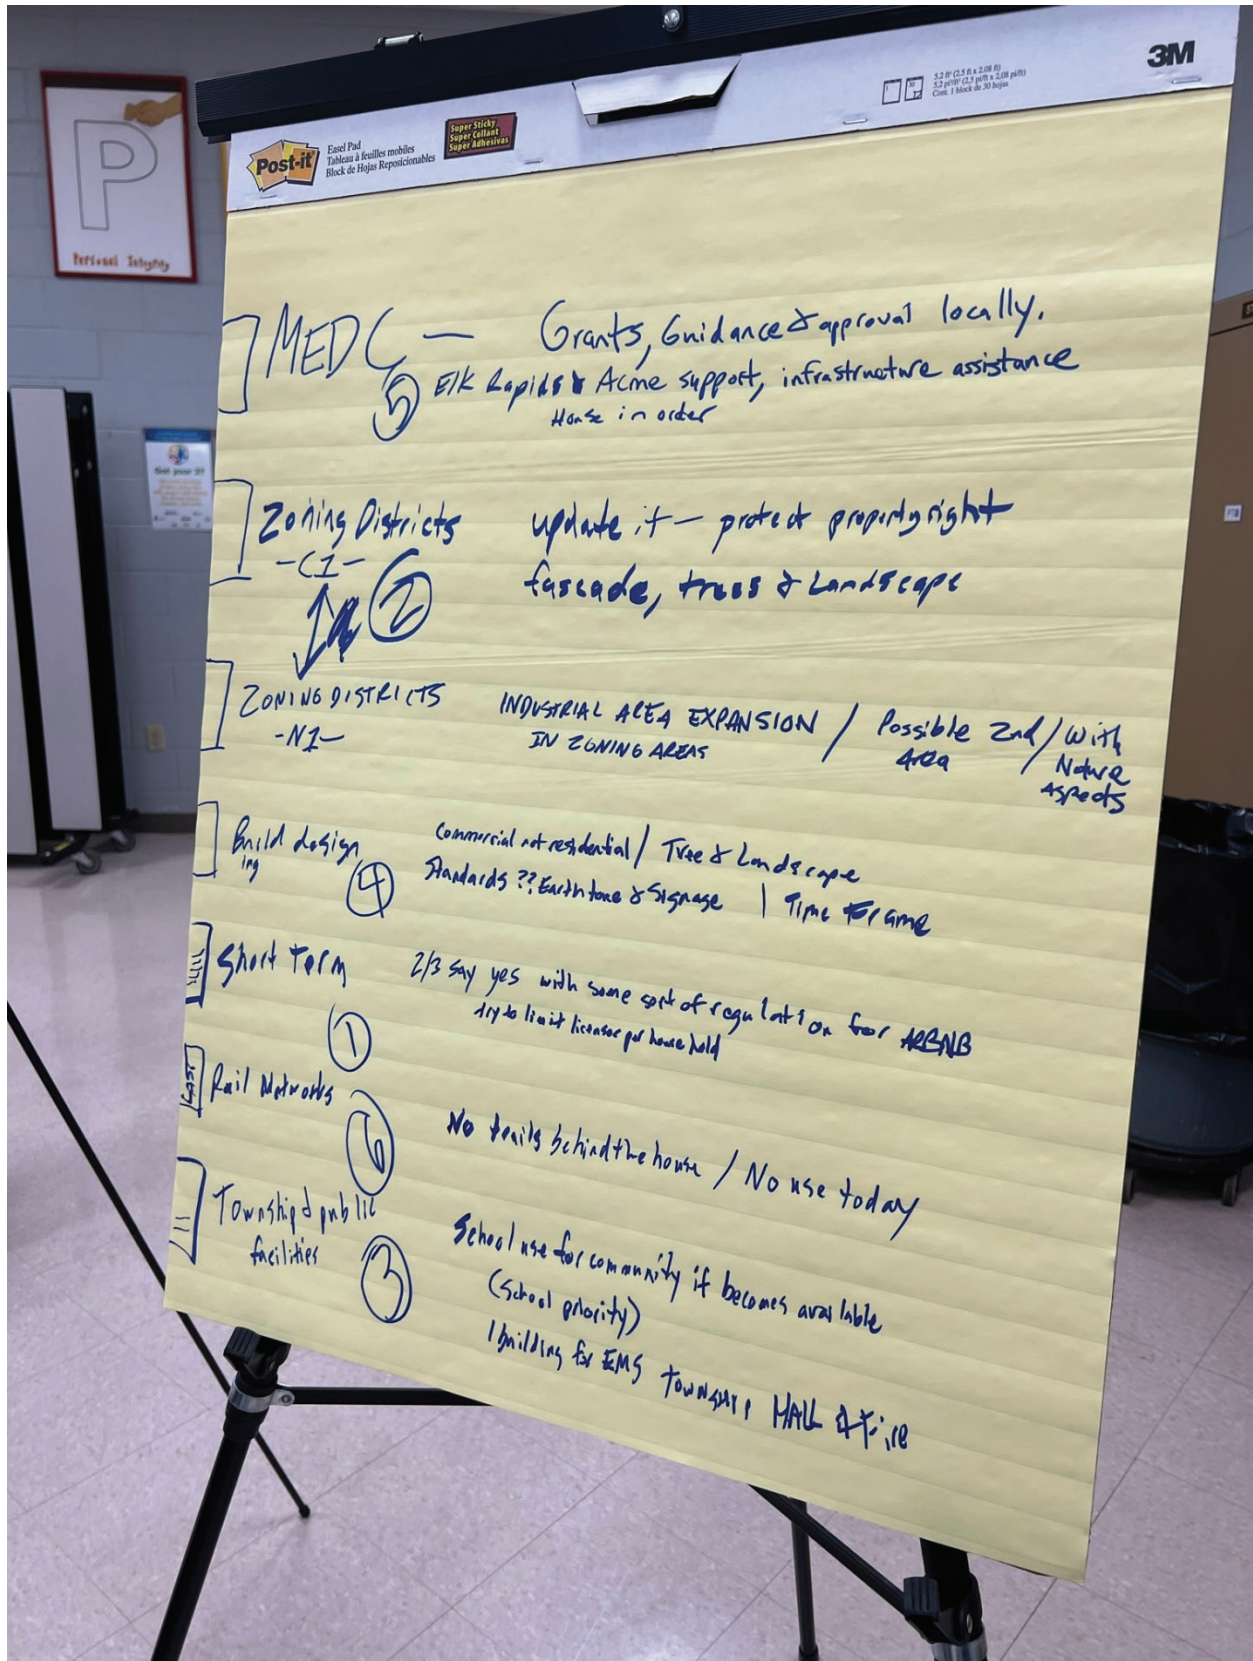 3M
5.2 ft² (2.5 ft x 2.08 ft)
5,2 pi²/ft² (2,5 pi/ft x 2,08 pi/ft)
Cont. 1 block de 30 hojas
Post-it
Easel Pad
Tableau à feuilles mobiles
Block de Hojas Reposicionables
Super Sticky
Super Collant
Super Adhesivas
P
Personal Integrity
MEDC — Grants, Guidance & approval locally.
5 Elk Rapids & Acme support, infrastructure assistance
House in order
Zoning Districts update it — protect property right
-C1- fascade, trees & Landscape
2
ZONING DISTRICTS INDUSTRIAL AREA EXPANSION / Possible 2nd / With
-N1- IN ZONING AREAS Area Nature
Aspects
Build design Commercial not residential / Tree & Landscape
ing
4 Standards ?? Earth tone & Signage | Time Frame
Short Term 2/3 say yes with some sort of regulation for ARBNB
1 try to limit per household
LAST Rail Networks
6 No trails behind the house / No use today
Township & public
facilities
3 School use for community if becomes available
(School priority)
1 building for EMS Township HALL & Fire